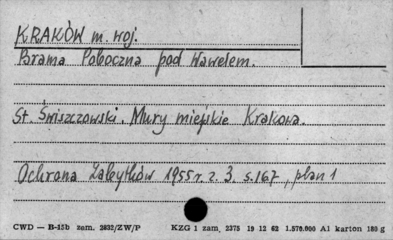 KRAKÓW m. woj.
Brama Poboczna pod Wawelem.
St. Świszczowski. Mury miejskie Krakowa.
Ochrona Zabytków 1955 r. z. 3. s. 167, plan 1
CWD — B-15b zem. 2832/ZW/P KZG 1 zam. 2375 19 12 62 1.570.000 A1 karton 180 g